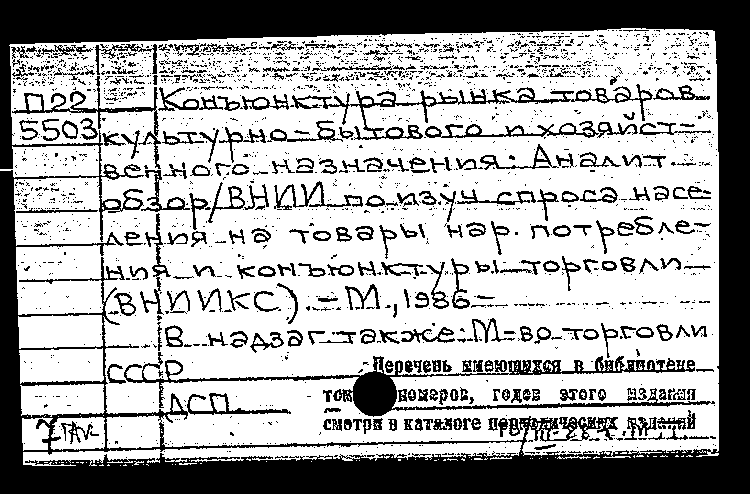 П22 Конъюнктура рынка товаров
5503 культурно-бытового и хозяйст-
венного назначения: Аналит.
обзор/ВНИИ по изуч спроса насе-
ления на товары нар. потребле-
ния и конъюнктуры торговли
(ВНИИКС). – М., 1986–
В надзаг. также: М-во торговли
СССР
Перечень имеющихся в библиотеке
томов, номеров, годов этого издания
ДСП
смотри в каталоге периодических изданий